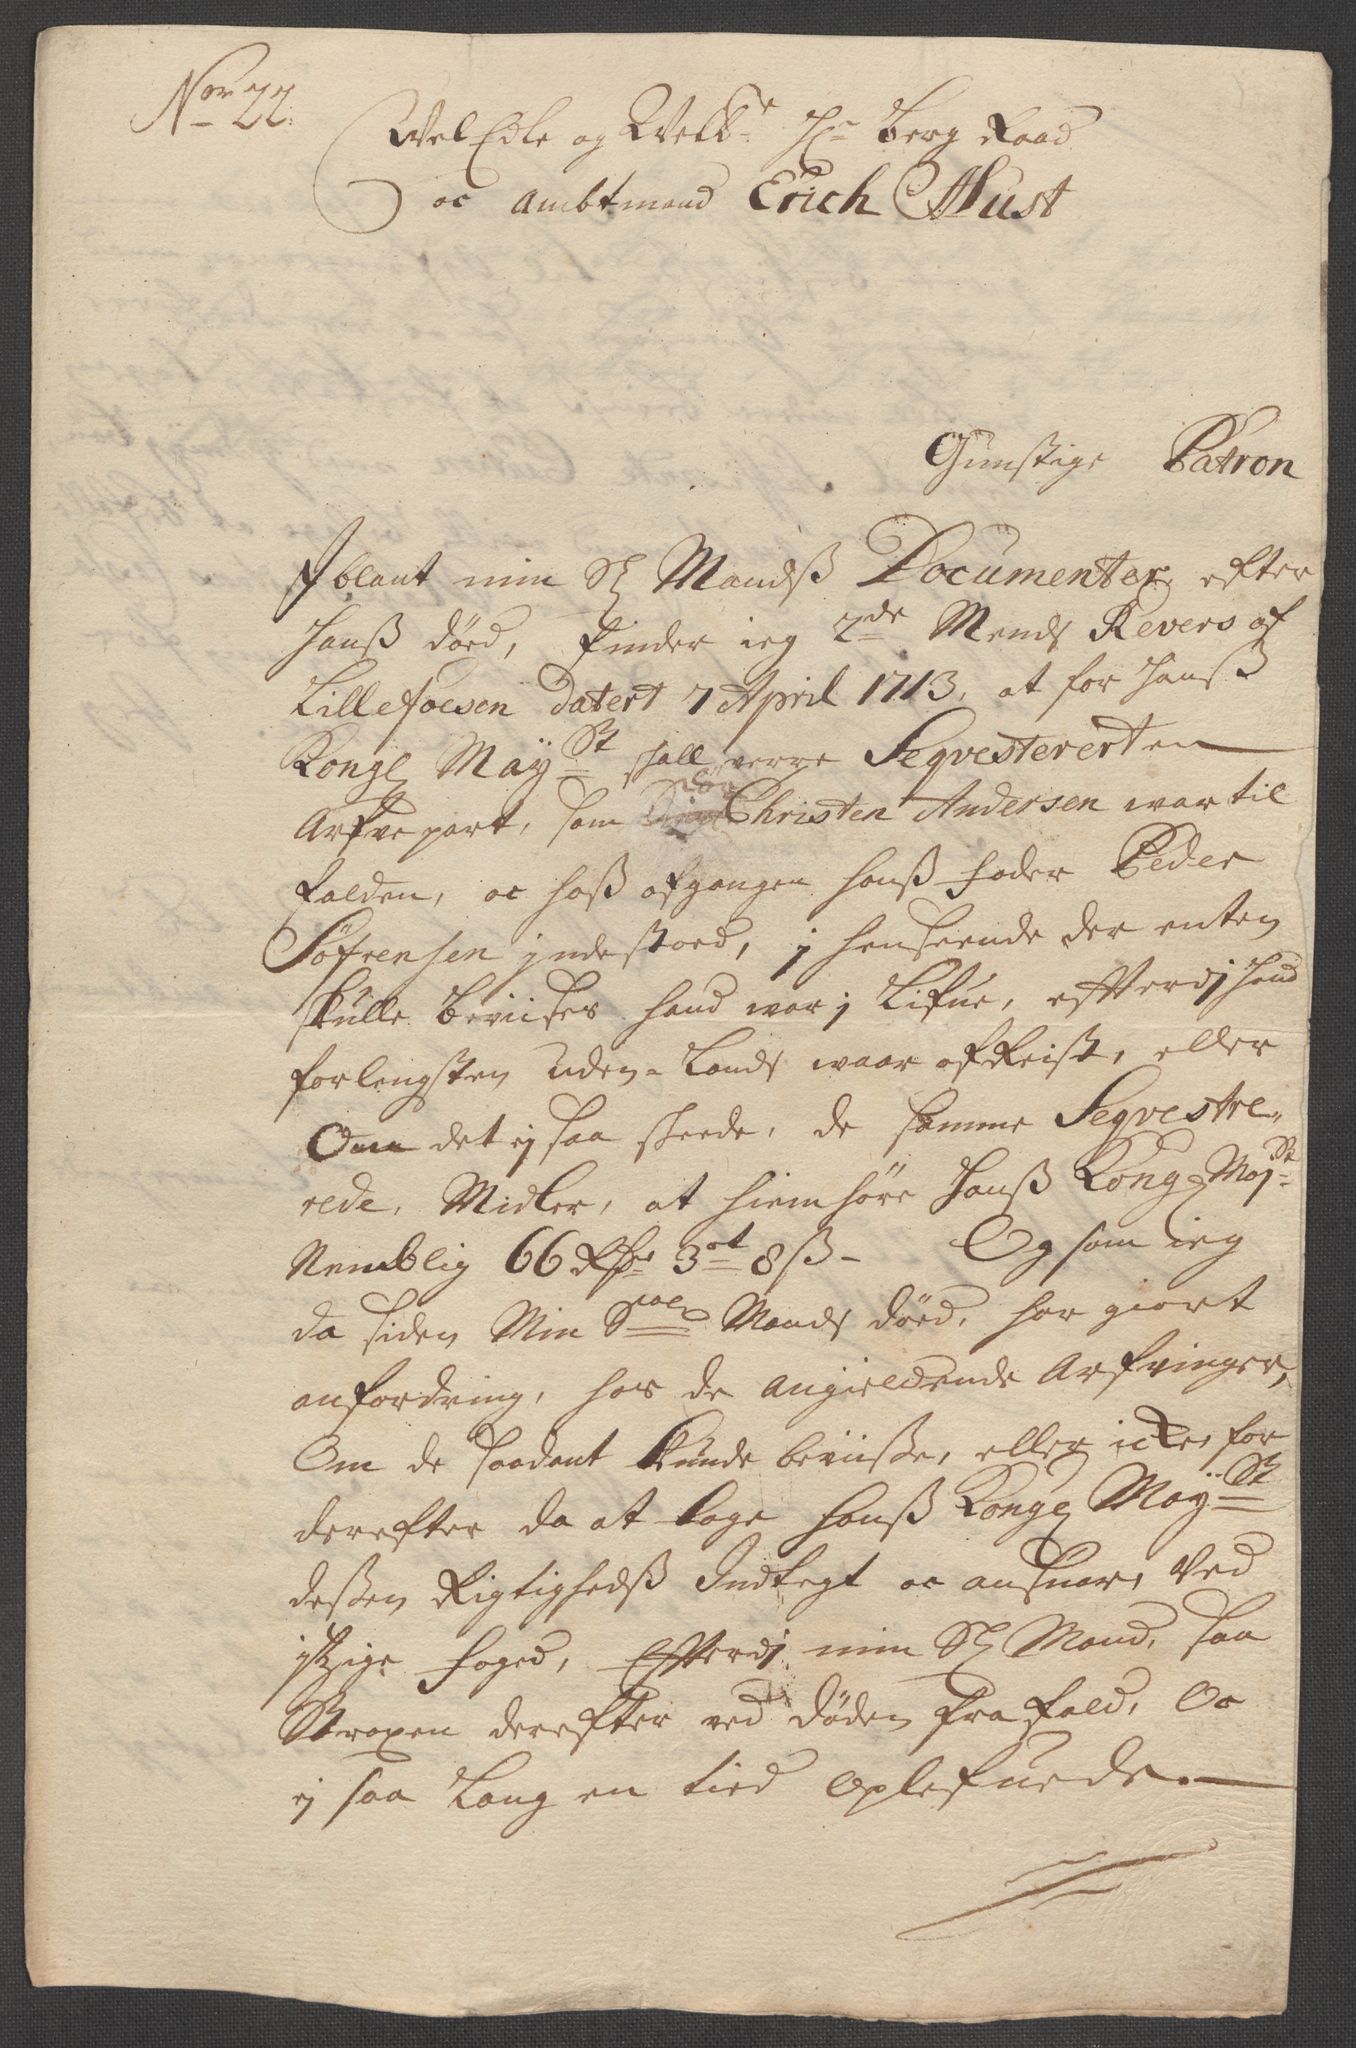 No 22.
WelEdle og Velb:r Hr Berg Raad
oc Ambtmand Erich Must
Gunstige Patron
Iblant min Sl Mandß Documenter, efter
hanß död, finder ieg 2de Mends Revers af
Lillefosen Datert 7 April 1713, at for hanß
Kongl May:st shall verre Seqvestereret en
Arfvepart, som Christen Andersen war til
falden, oc hoß afgangen hanß fader Peder
Söfrensen indestoed, j henseende der enten
skulle beviises hand war j Lifue, efterdj hand
forlengsten uden-Lands waar afReist, eller
Om det ej saa skeede, de samme Seqvestre,,
rede, Midler, at hiemhöre hanß Kongl May:st
Nemblig 66 Rdr 3 ort 8 ß - Og som ieg
da siden Min Sal Mands död, har giort
anfordring, hos de angieldende Arfvinger,
Om de saadant kunde beviisse, eller icke, for
derefter da at tage hanß Kongl May:st
dessen Rigtighedß Indtegt oc ansvar, ved
itzige foged, Efterdj min Sl Mand, saa
Straxen derefter ved döden frafald, Oc
ej saa Lang en tied oplefuede.